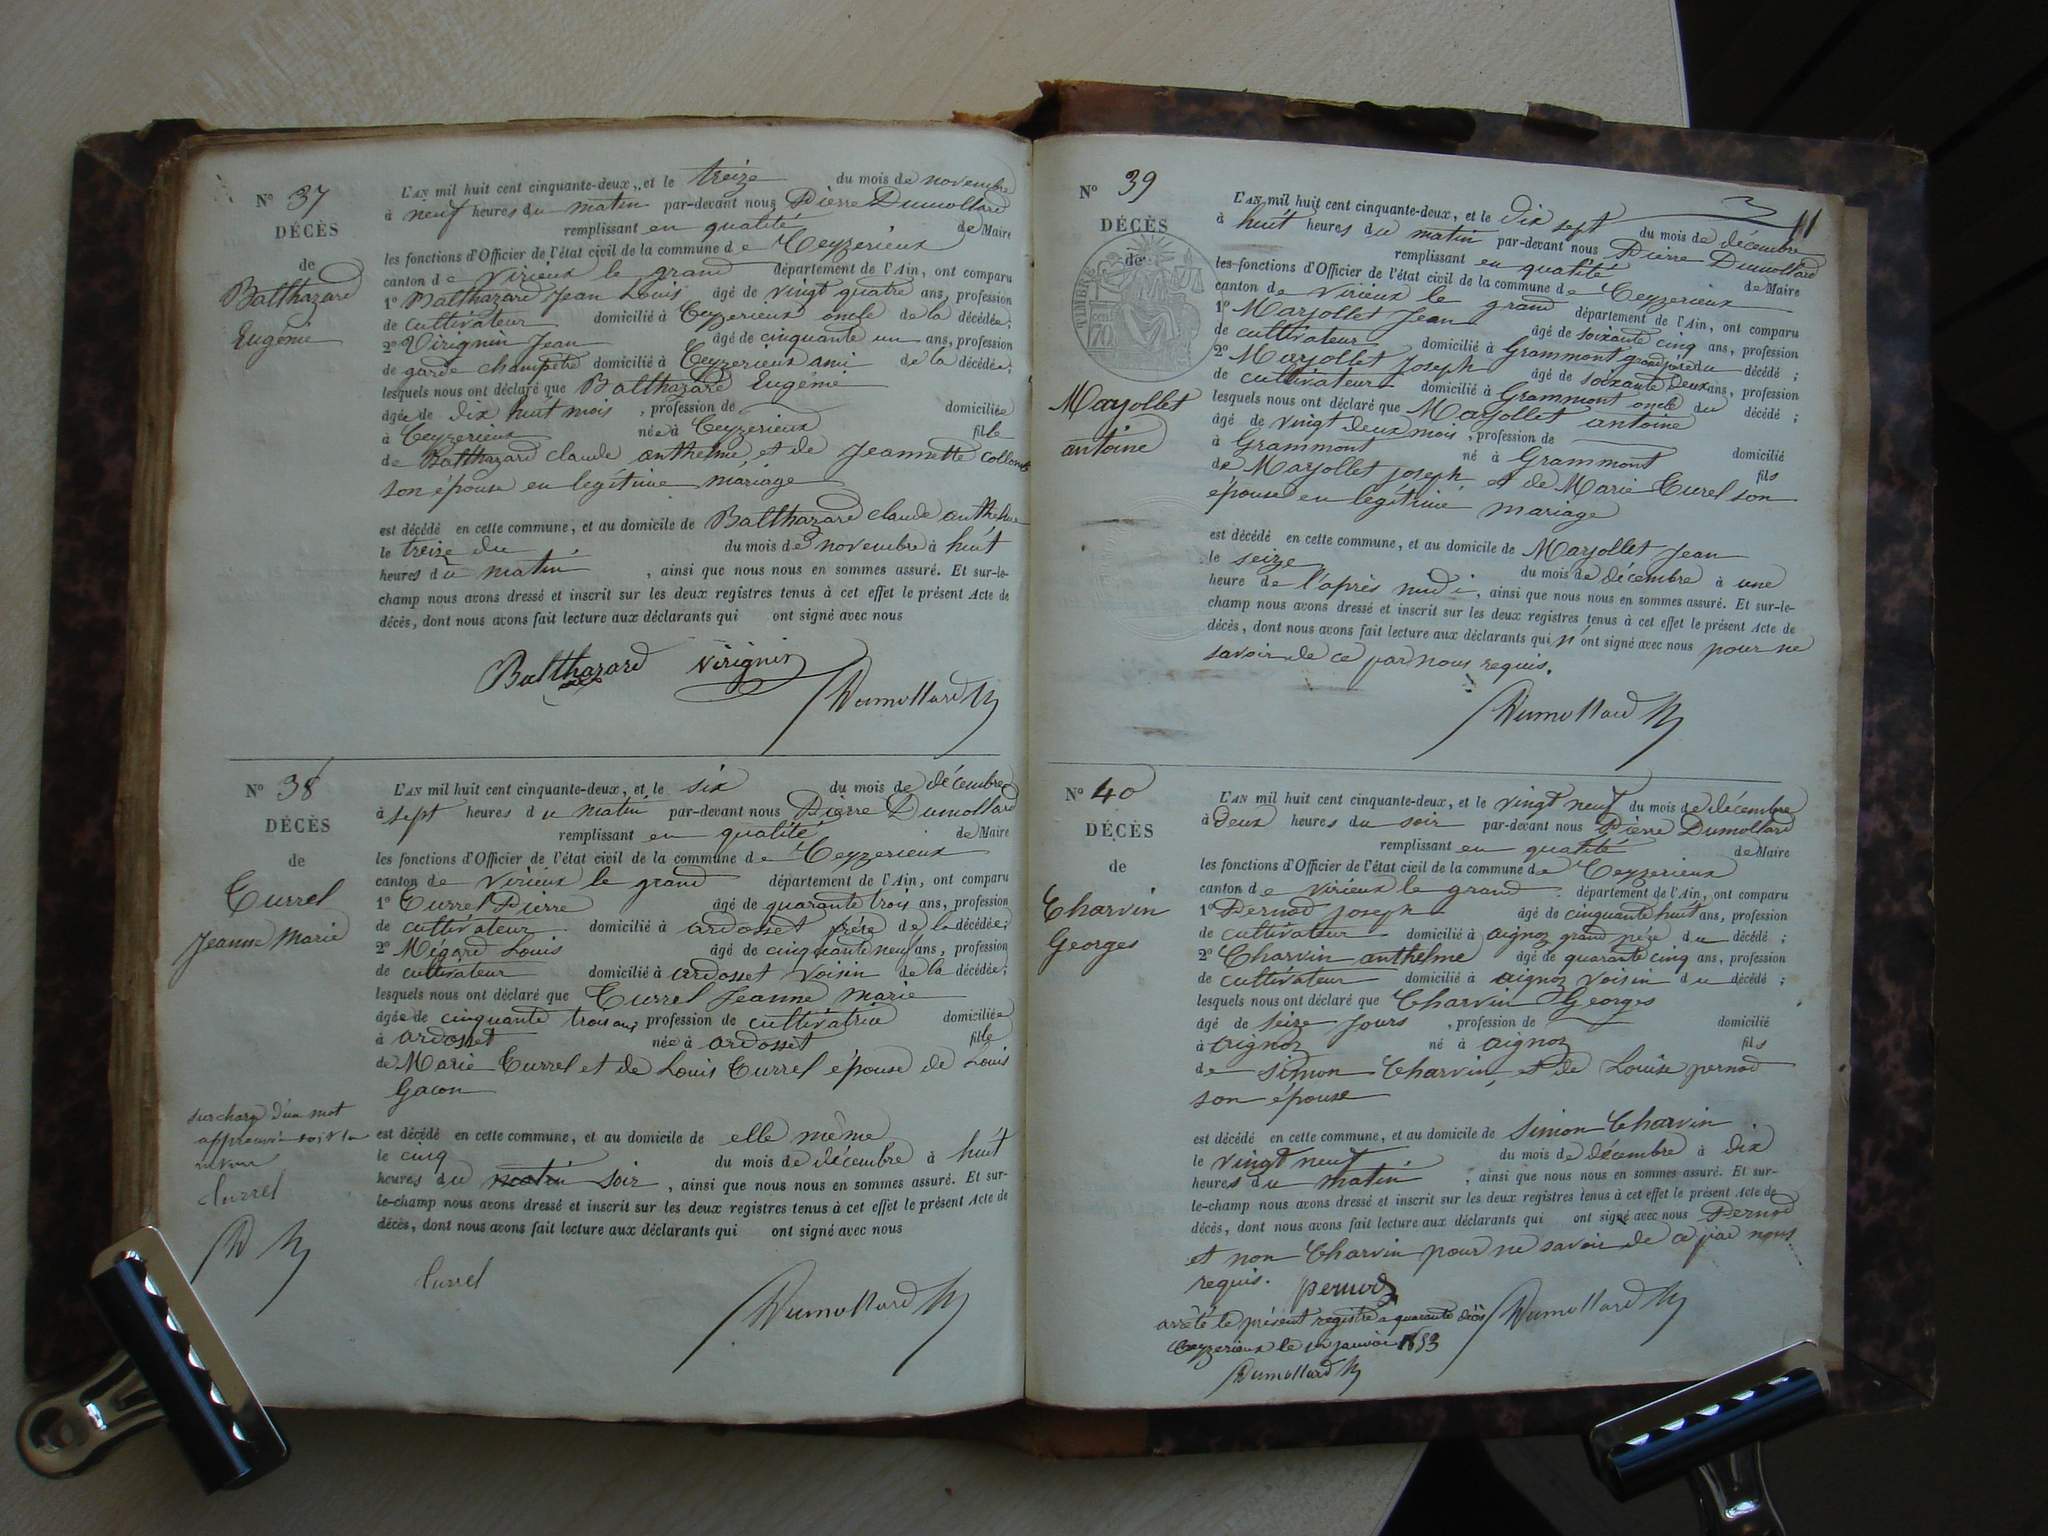 N° 37
DÉCÈS
de
Balthazard
Eugénie
L'AN mil huit cent cinquante-deux, et le treize du mois de novembre
à neuf heures du matin par-devant nous Pierre Dumollard
remplissant en qualité de Maire
les fonctions d'Officier de l'état civil de la commune de Ceyzerieux
canton de Virieux le grand département de l'Ain, ont comparu
1° Balthazard Jean Louis âgé de vingt quatre ans, profession
de cultivateur domicilié à Ceyzerieux oncle de la décédée;
2° Virignin Jean âgé de cinquante un ans, profession
de garde champêtre domicilié à Ceyzerieux ami de la décédée;
lesquels nous ont déclaré que Balthazard Eugénie
âgée de dix huit mois, profession de domiciliée
à Ceyzerieux née à Ceyzerieux fille
de Balthazard claude anthelme et de Jeannette
son épouse en legitime mariage
est décédé en cette commune, et au domicile de Balthazard claude anthelme
le treize du du mois de novembre à huit
heures du matin, ainsi que nous nous en sommes assuré. Et sur-le-
champ nous avons dressé et inscrit sur les deux registres tenus à cet effet le présent Acte de
décès, dont nous avons fait lecture aux déclarants qui ont signé avec nous
Balthazard virignin
Dumollard
N° 38
DÉCÈS
de
Turrel
Jeanne Marie
L'AN mil huit cent cinquante-deux, et le six du mois de décembre
à sept heures du matin par-devant nous Pierre Dumollard
remplissant en qualité de Maire
les fonctions d'Officier de l'état civil de la commune de Ceyzerieux
canton de Virieux le grand département de l'Ain, ont comparu
1° Turrel Pierre âgé de quarante trois ans, profession
de cultivateur domicilié à ardosset frére de la décédée;
2° Mégard Louis âgé de cinquante neuf ans, profession
de cultivateur domicilié à ardosset voisin de la décédée;
lesquels nous ont déclaré que Turrel Jeanne Marie
âgée de cinquante trois ans, profession de cultivatrice domiciliée
à ardosset née à ardosset fille
de Marie Turrel et de Louis Turrel épouse de Louis
Gacon
est décédé en cette commune, et au domicile de elle même
le cinq du mois de décembre à huit
heures du matin soir, ainsi que nous nous en sommes assuré. Et sur-
le-champ nous avons dressé et inscrit sur les deux registres tenus à cet effet le présent Acte de
décès, dont nous avons fait lecture aux déclarants qui ont signé avec nous
surcharge d'un mot
Turrel
Turrel
Dumollard
N° 39
DÉCÈS
de
TIMBRE
Marjollet
antoine
11
L'AN mil huit cent cinquante-deux, et le dix sept du mois de décembre
à huit heures du matin par-devant nous Pierre Dumollard
remplissant en qualité de Maire
les fonctions d'Officier de l'état civil de la commune de Ceyzerieux
canton de Virieux le grand département de l'Ain, ont comparu
1° Marjollet Jean âgé de soixante cinq ans, profession
de cultivateur domicilié à Grammont grand père du décédé;
2° Marjollet Joseph âgé de soixante deux ans, profession
de cultivateur domicilié à Grammont oncle du décédé;
lesquels nous ont déclaré que Marjollet antoine
âgé de vingt deux mois, profession de domicilié
à Grammont né à Grammont fils
de Marjollet joseph et de Marie Turel son
épouse en legitime mariage
est décédé en cette commune, et au domicile de Marjollet Jean
le seize du mois de décembre à une
heure de l'après midi, ainsi que nous nous en sommes assuré. Et sur-le-
champ nous avons dressé et inscrit sur les deux registres tenus à cet effet le présent Acte de
décès, dont nous avons fait lecture aux déclarants qui n'ont signé avec nous pour ne
savoir de ce par nous requis.
Dumollard
N° 40
DÉCÈS
de
Charvin
Georges
L'AN mil huit cent cinquante-deux, et le vingt neuf du mois de décembre
à deux heures du soir par-devant nous Pierre Dumollard
remplissant en qualité de Maire
les fonctions d'Officier de l'état civil de la commune de Ceyzerieux
canton de Virieux le grand département de l'Ain, ont comparu
1° Pernod Joseph âgé de cinquante huit ans, profession
de cultivateur domicilié à aignoz grand père du décédé;
2° Charvin anthelme âgé de quarante cinq ans, profession
de cultivateur domicilié à aignoz voisin du décédé;
lesquels nous ont déclaré que Charvin Georges
âgé de seize jours, profession de domicilié
à aignoz né à aignoz fils
de Simon Charvin et de Louise pernod
son épouse
est décédé en cette commune, et au domicile de Simon Charvin
le vingt neuf du mois de décembre à dix
heures du matin, ainsi que nous nous en sommes assuré. Et sur-
le-champ nous avons dressé et inscrit sur les deux registres tenus à cet effet le présent Acte de
décès, dont nous avons fait lecture aux déclarants qui ont signé avec nous Pernod
et non Charvin pour ne savoir de ce par nous
requis. pernod
Dumollard
arrêté le présent registre a quarante décès
Ceyzerieux le 1er janvier 1853
Dumollard